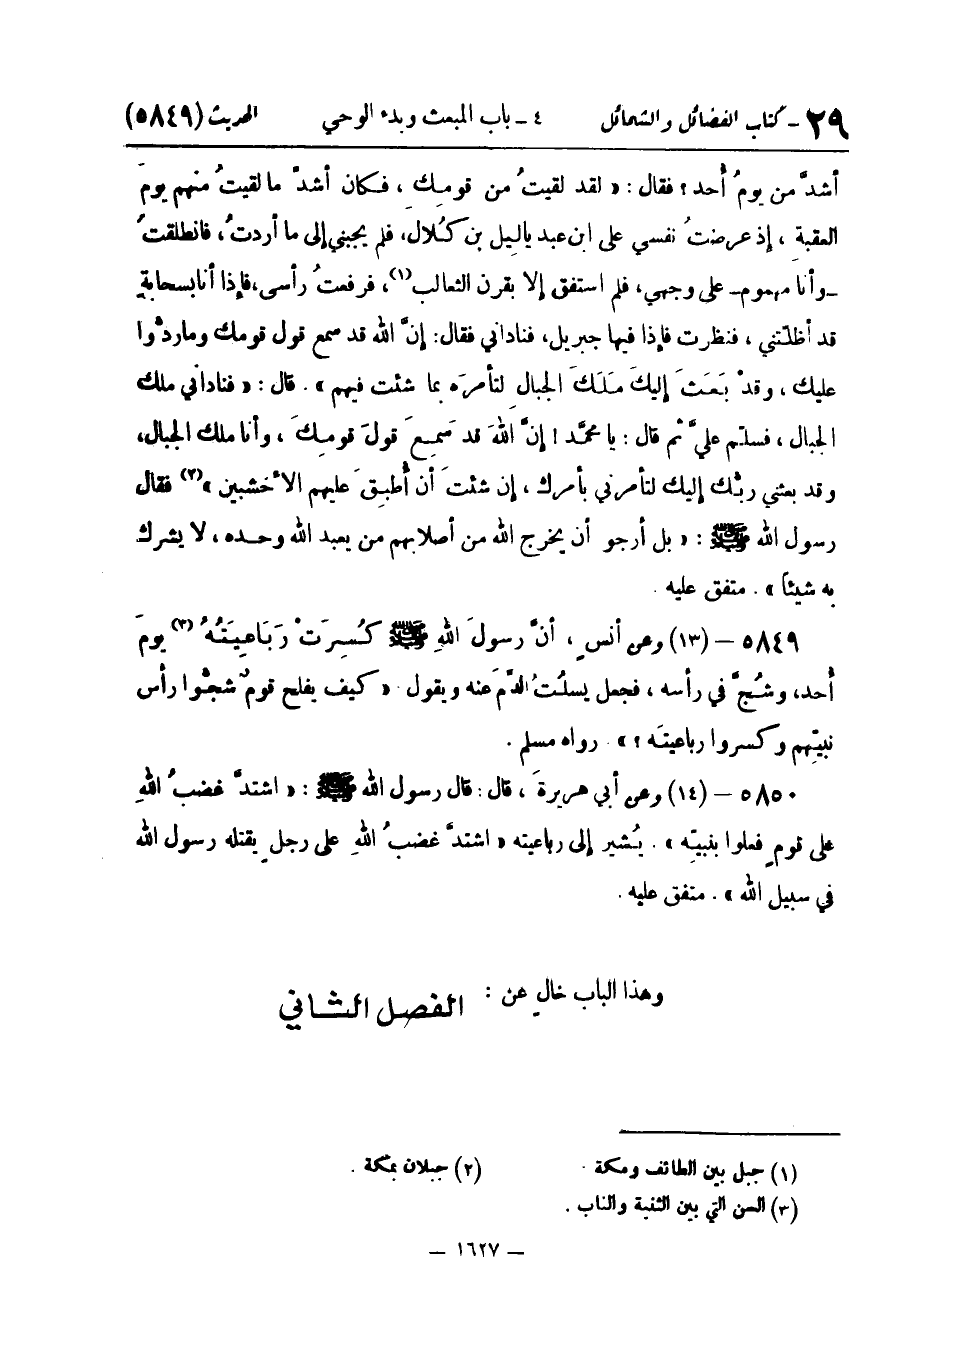 ٢٩ – كتاب الفضائل والشمائل ٤ – باب المبعث وبدء الوحي الحديث (٥٨٤٩)
أشدَّ من يوم أُحد ؟ فقال : « لقد لقيتُ من قومِك ، فكان أشدَّ ما لقيتُ منهم يومَ
العقبةِ ، إذ عرضتُ نفسي على ابن عبد ياليل بن كُلال، فلم يجبني إلى ما أردتُ، فانطلقتُ
– وأنا مهموم – على وجهي، فلم استفق إلا بقرن الثعالب(١)، فرفعتُ رأسي، فإذا أنا بسحابةٍ
قد أظلّتني ، فنظرت فإذا فيها جبريل، فناداني فقال: إنَّ الله قد سمع قول قومك وما ردُّوا
عليك ، وقدْ بَعَثَ إليكَ مَلَكَ الجبالِ لتأمرَه بما شئت فيهم » . قال : « فناداني ملك
الجبال ، فسلّم عليَّ ثم قال : يا محمَّد ! إنَّ اللهَ قد سَمِعَ قولَ قومِكَ ، وأنا ملك الجبال،
وقد بعثني ربُّك إليك لتأمرني بأمرك ، إن شئتَ أن أُطبِقَ عليهم الأخشبين »(٢) فقال
رسول الله ﷺ : « بل أرجو أن يخرج الله من أصلابهم من يعبد الله وحده ، لا يشرك
به شيئاً » . متفق عليه .
٥٨٤٩ – (١٣) وعن أنسٍ ، أنَّ رسولَ اللهِ ﷺ كُسِرَتْ رَبَاعِيَتُهُ(٣) يومَ
أُحد، وشُجَّ في رأسه ، فجعل يسلُتُ الدَّمَ عنه ويقول « كيف يفلح قومٌ شجُّوا رأس
نبيّهم وكسروا رباعيتَه ؟ » . رواه مسلم .
٥٨٥٠ – (١٤) وعن أبي هريرةَ ، قال : قال رسول الله ﷺ : « اشتدَّ غضبُ اللهِ
على قومٍ فعلوا بنبيّه » . يُشير إلى رباعيته « اشتدَّ غضبُ اللهِ على رجلٍ يقتله رسول الله
في سبيل الله » . متفق عليه .
وهذا الباب خالٍ عن : الفصل الثاني
(١) جبل بين الطائف ومكة . (٢) جبلان بمكة .
(٣) السن التي بين الثنية والناب .
– ١٦٢٧ –